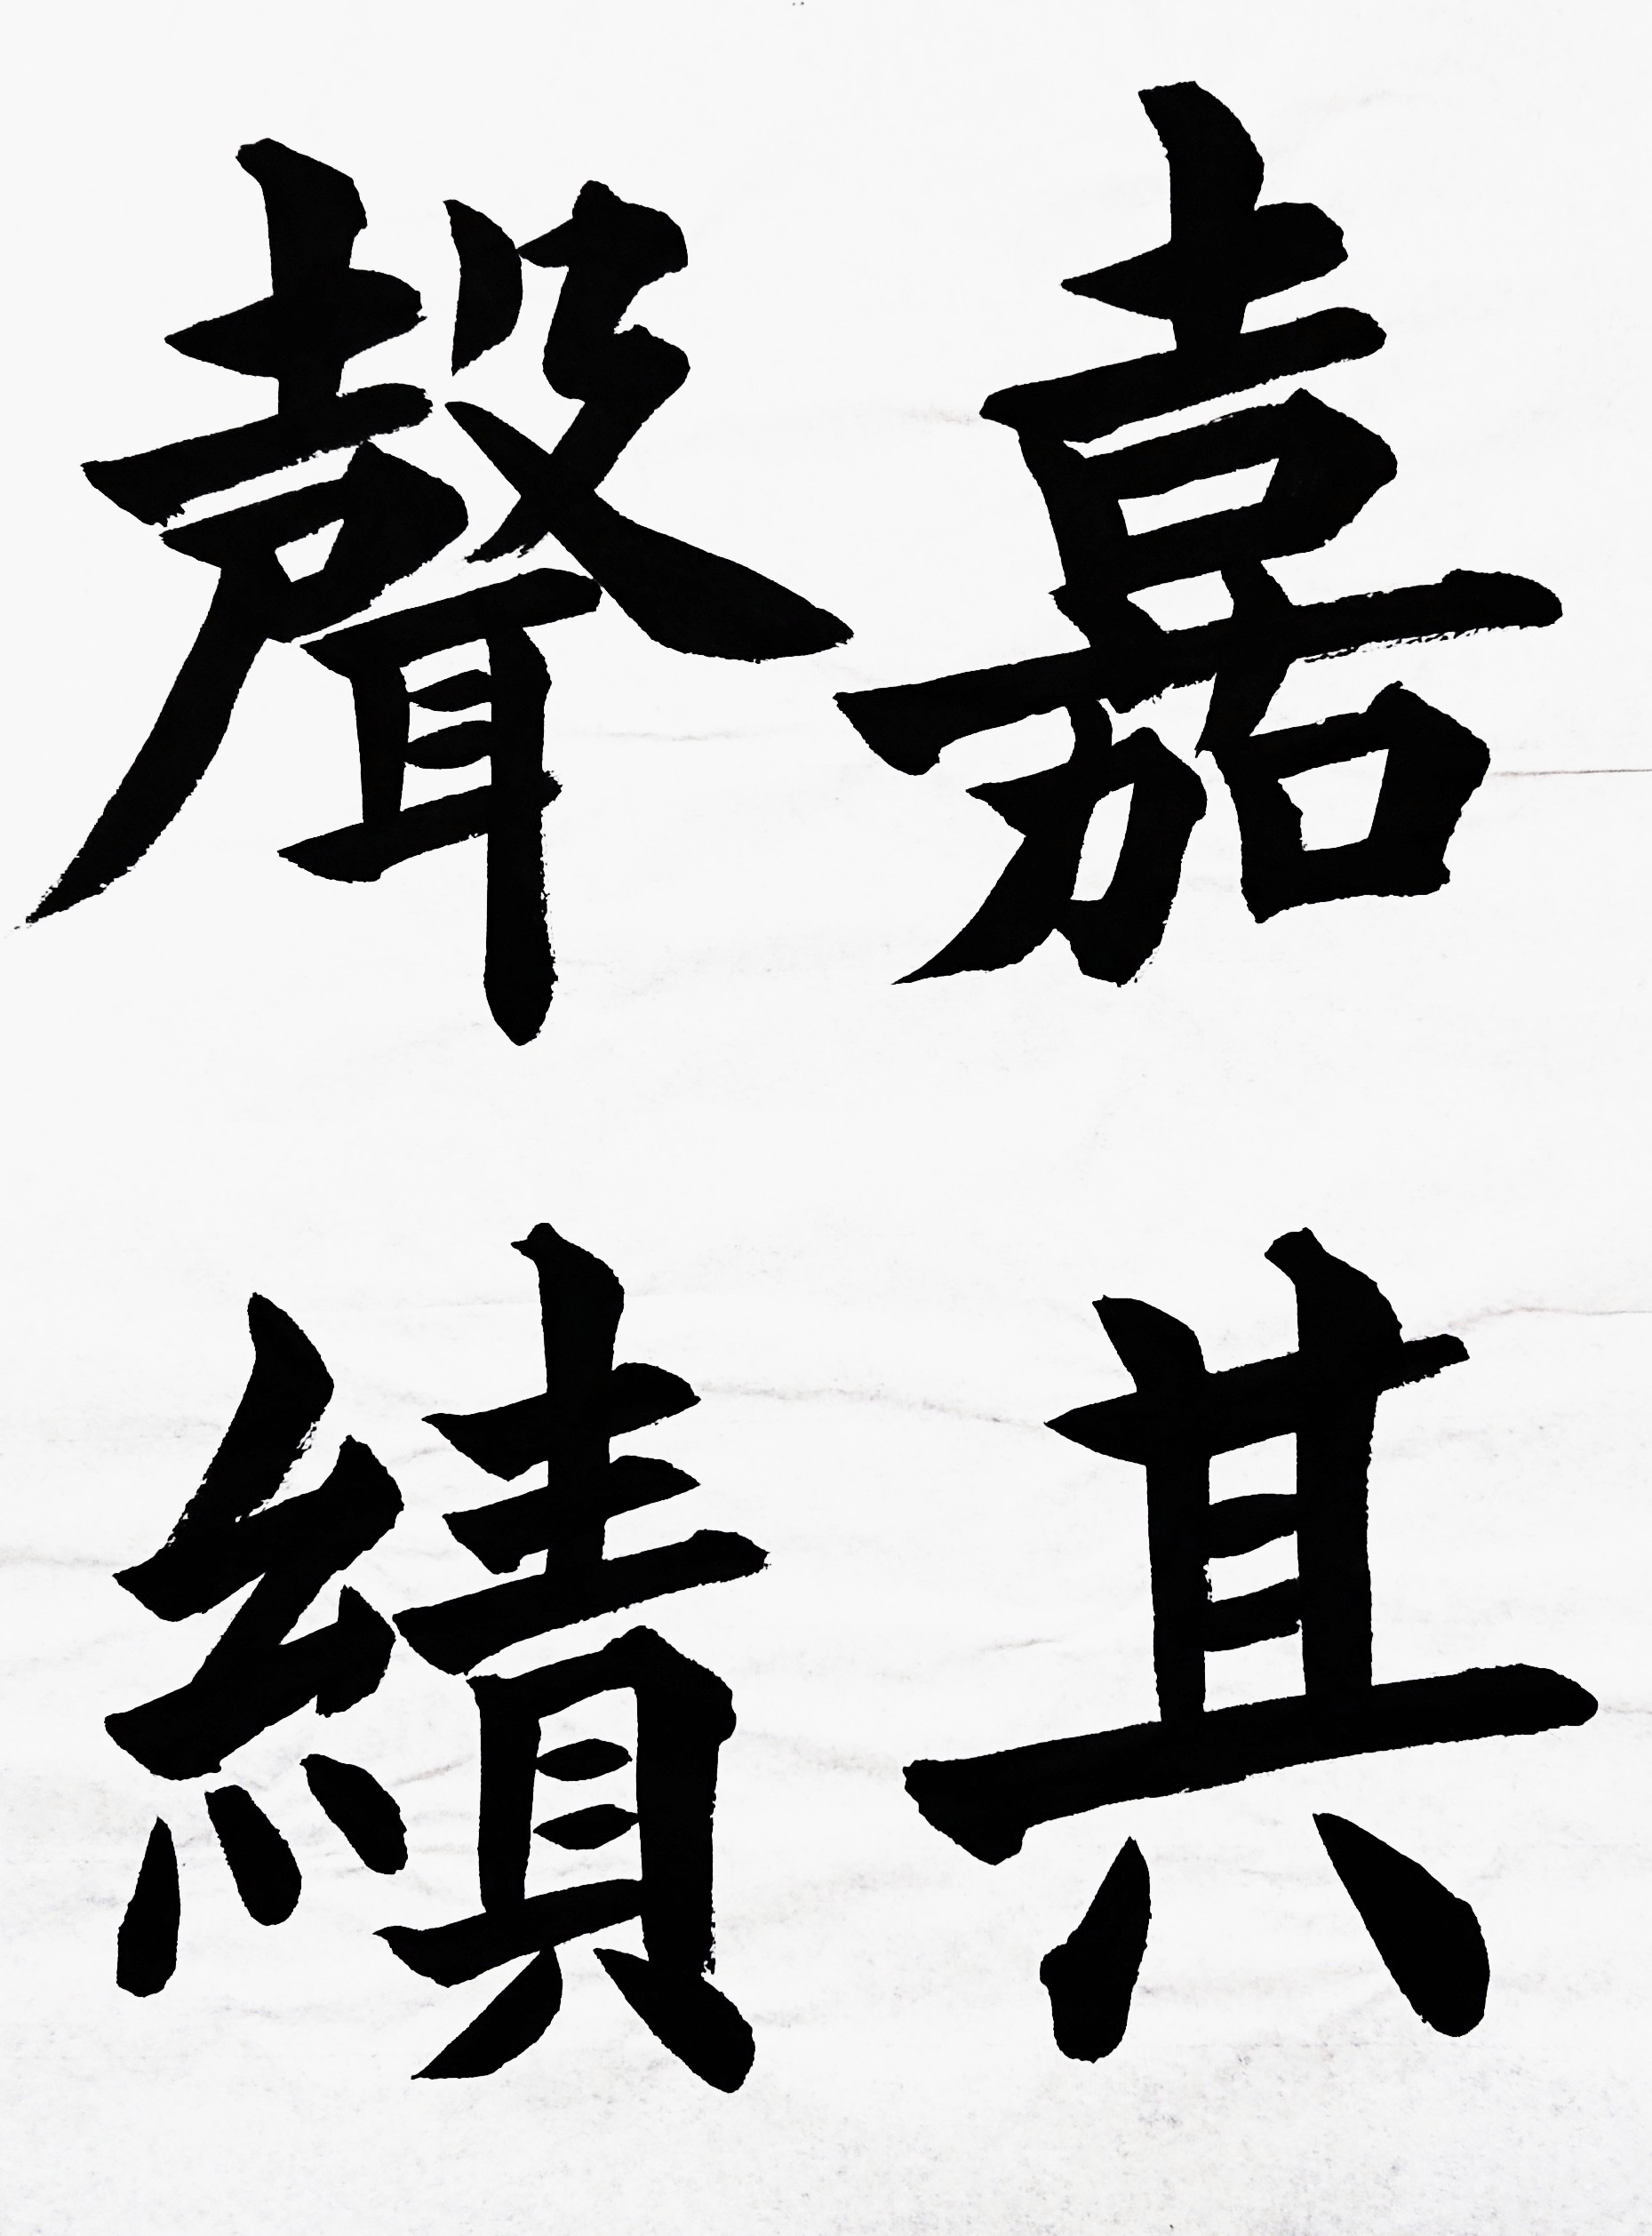 嘉其
聲績